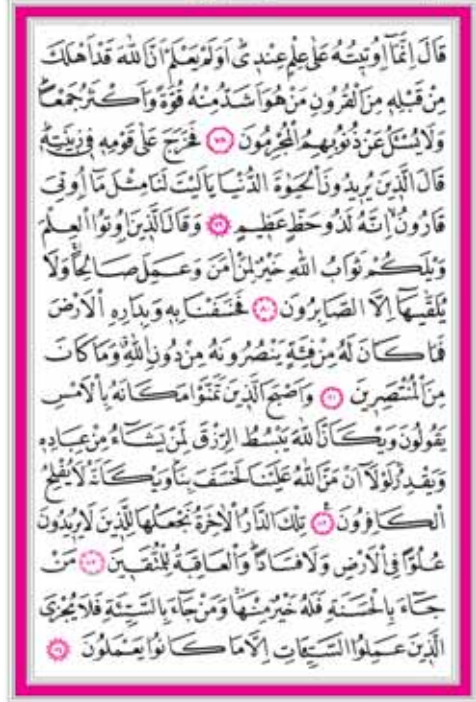 قَالَ اِنَّمَٓا اُو۫ت۪يتُهُ عَلٰى عِلْمٍ عِنْد۪يۜ اَوَلَمْ يَعْلَمْ اَنَّ اللّٰهَ قَدْ اَهْلَكَ
مِنْ قَبْلِه۪ مِنَ الْقُرُونِ مَنْ هُوَ اَشَدُّ مِنْهُ قُوَّةً وَاَكْثَرُ جَمْعًاۜ
وَلَا يُسْـَٔلُ عَنْ ذُنُوبِهِمُ الْمُجْرِمُونَ ﴿٧٨﴾ فَخَرَجَ عَلٰى قَوْمِه۪ ف۪ي ز۪ينَتِه۪ۜ
قَالَ الَّذ۪ينَ يُر۪يدُونَ الْحَيٰوةَ الدُّنْيَا يَا لَيْتَ لَنَا مِثْلَ مَٓا اُو۫تِيَ
قَارُونُۙ اِنَّهُ لَذُو حَظٍّ عَظ۪يمٍ ﴿٧٩﴾ وَقَالَ الَّذ۪ينَ اُو۫تُوا الْعِلْمَ
وَيْلَكُمْ ثَوَابُ اللّٰهِ خَيْرٌ لِمَنْ اٰمَنَ وَعَمِلَ صَالِحًاۚ وَلَا
يُلَقّٰيهَٓا اِلَّا الصَّابِرُونَ ﴿٨٠﴾ فَخَسَفْنَا بِه۪ وَبِدَارِهِ الْاَرْضَ
فَمَا كَانَ لَهُ مِنْ فِئَةٍ يَنْصُرُونَهُ مِنْ دُونِ اللّٰهِۗ وَمَا كَانَ
مِنَ الْمُنْتَصِر۪ينَ ﴿٨١﴾ وَاَصْبَحَ الَّذ۪ينَ تَمَنَّوْا مَكَانَهُ بِالْاَمْسِ
يَقُولُونَ وَيْكَاَنَّ اللّٰهَ يَبْسُطُ الرِّزْقَ لِمَنْ يَشَٓاءُ مِنْ عِبَادِه۪
وَيَقْدِرُۚ لَوْلَٓا اَنْ مَنَّ اللّٰهُ عَلَيْنَا لَخَسَفَ بِنَاۜ وَيْكَاَنَّهُ لَا يُفْلِحُ
الْكَافِرُونَ۟ ﴿٨٢﴾ تِلْكَ الدَّارُ الْاٰخِرَةُ نَجْعَلُهَا لِلَّذ۪ينَ لَا يُر۪يدُونَ
عُلُوًّا فِي الْاَرْضِ وَلَا فَسَادًاۜ وَالْعَاقِبَةُ لِلْمُتَّق۪ينَ ﴿٨٣﴾ مَنْ
جَٓاءَ بِالْحَسَنَةِ فَلَهُ خَيْرٌ مِنْهَاۚ وَمَنْ جَٓاءَ بِالسَّيِّئَةِ فَلَا يُجْزَى
الَّذ۪ينَ عَمِلُوا السَّيِّـَٔاتِ اِلَّا مَا كَانُوا يَعْمَلُونَ ﴿٨٤﴾